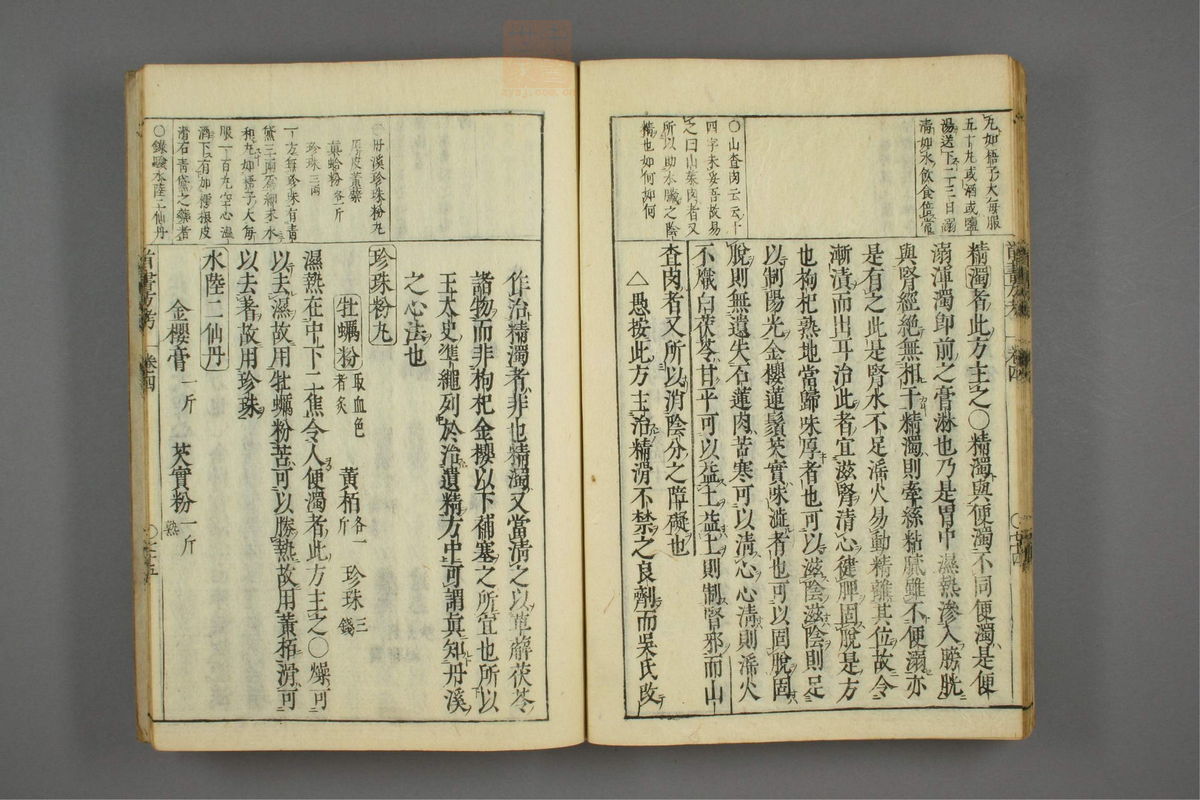 丸如梧子大每服
五十丸或酒或鹽
湯送下二三日溺
清如水飲食倍常
○山査肉云云十
四字未妥吾故易
之曰山茱肉者又
所以助水臟之陰
精也如何如何
精濁者此方主之○精濁與便濁不同便濁是便
溺渾濁卽前之膏淋也乃是胃中濕熱滲入膀胱
與腎經絕無相干精濁則牽絲粘膩雖不便溺亦
是有之此是腎水不足淫火易動精離其位故令
漸漬而出耳治此者宜滋腎清心健脾固脫是方
也枸杞熟地當歸味厚者也可以滋陰滋陰則足
以制陽光金櫻蓮鬚芡實味澁者也可以固脫固
脫則無遺失石蓮肉苦寒可以清心心清則淫火
不熾白茯苓甘平可以益土益土則制腎邪而山
查肉者又所以消陰分之障礙也
△愚按此方主治精滑不禁之良劑而吳氏改
首書方考 卷四 ○
作治精濁者非也精濁又當清之以萆薢茯苓
諸物而非枸杞金櫻以下補塞之所宜也所以
王太史準繩列於治遺精方中可謂眞知丹溪
之心法也
○丹溪珍珠粉丸
眞蛤粉各一斤
珍珠三兩
一方無珍珠有青
黛三兩爲細末水
和丸如梧子大每
服一百丸空心溫
酒下有如樗根皮
滑石青黛之藥者
珍珠粉丸
牡蠣粉取血色者炙 黃栢各一斤 珍珠三錢
濕熱在中下二焦令人便濁者此方主之○燥可
以去濕故用牡蠣粉苦可以勝熱故用黃栢滑可
以去著故用珍珠
○錄驗水陸二仙丹
水陸二仙丹
金櫻膏一斤 芡實粉一斤熟
首書方考 卷四 ○七五